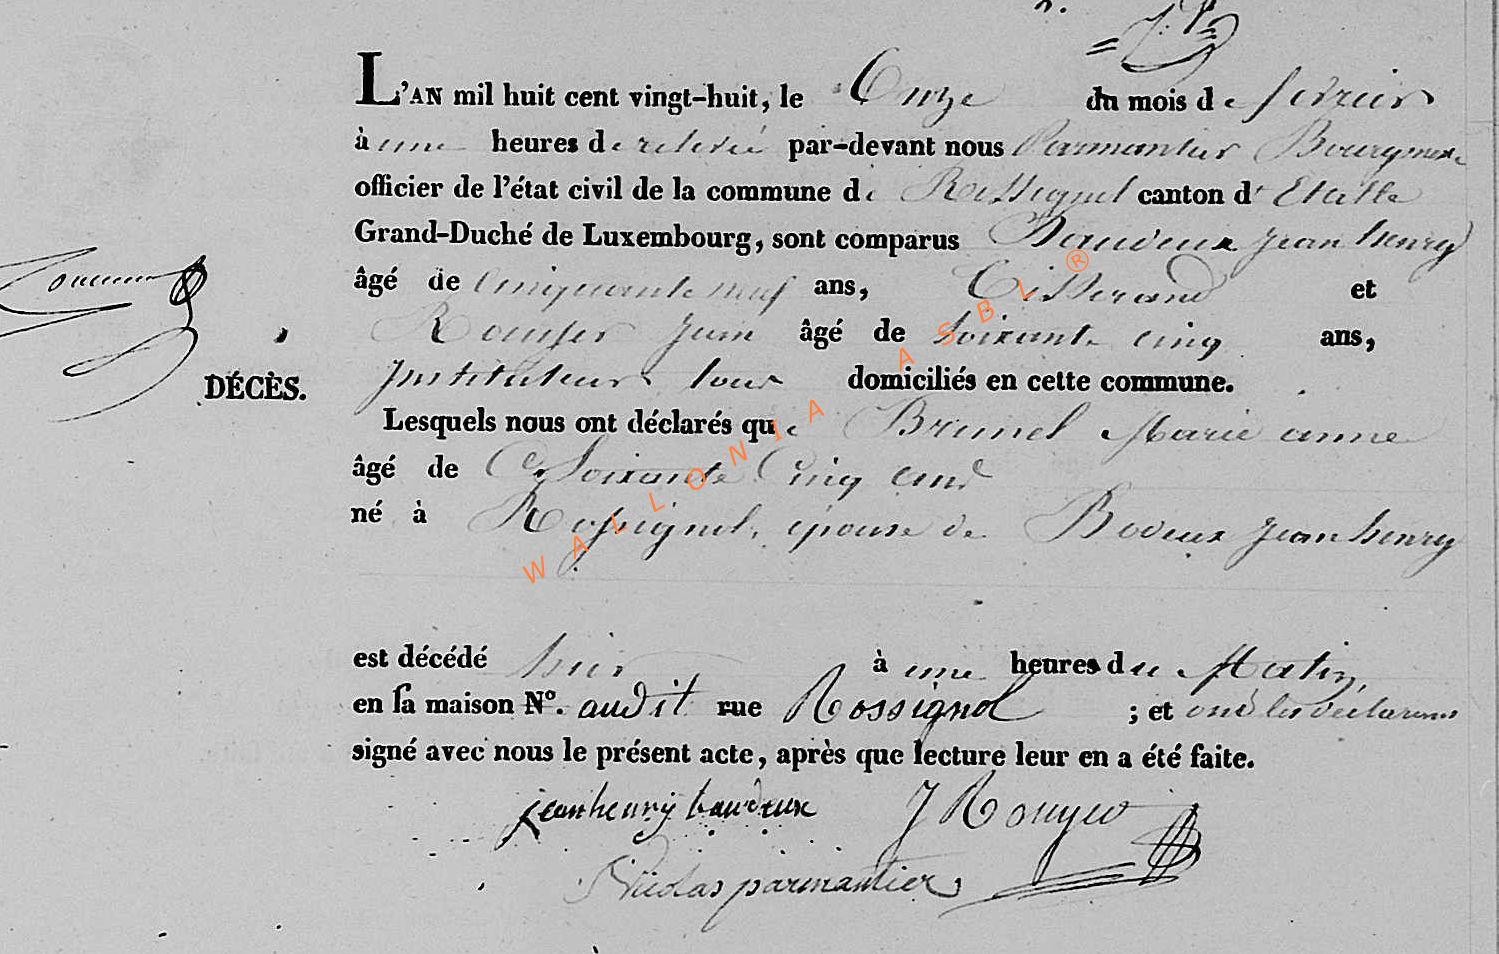 L'AN mil huit cent vingt-huit, le Onze du mois de fevrier
à une heures de relevée par-devant nous Parmantier Bourgmestre
officier de l'état civil de la commune de Rossignol canton d'Etalle
Grand-Duché de Luxembourg, sont comparus Baudeux jean henry
âgé de Cinquante neuf ans, Tisserand et
Rouyer jean âgé de Soixante cinq ans,
DÉCÈS. Instituteur tous domiciliés en cette commune.
Lesquels nous ont déclarés que Brunel Marie anne
âgé de Soixante Cinq ans
né à Rossignol, épouse de Bodeux jean henry
est décédé hier à une heures du Matin,
en sa maison N°. audit rue Rossignol ; et ont les déclarans
signé avec nous le présent acte, après que lecture leur en a été faite.
jean henry baudeux J Rouyer
Nicolas parmantier
WALLONIA ASBL ®